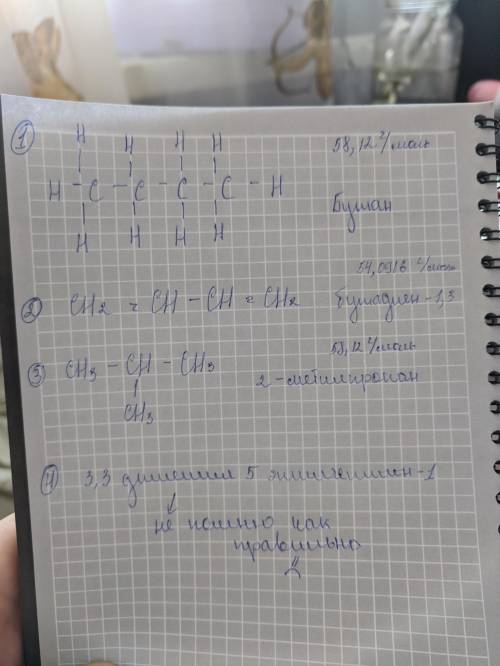 ① H H H H 58,12 г/моль
H - C - C - C - C - H
H H H H Бутан
54,0916 г/моль
② CH2 = CH - CH = CH2 Бутадиен-1,3
58,12 г/моль
③ CH3 - CH - CH3
2-метилпропан
CH3
④ 3,3 диметил 5 -1
не помню как
правильно